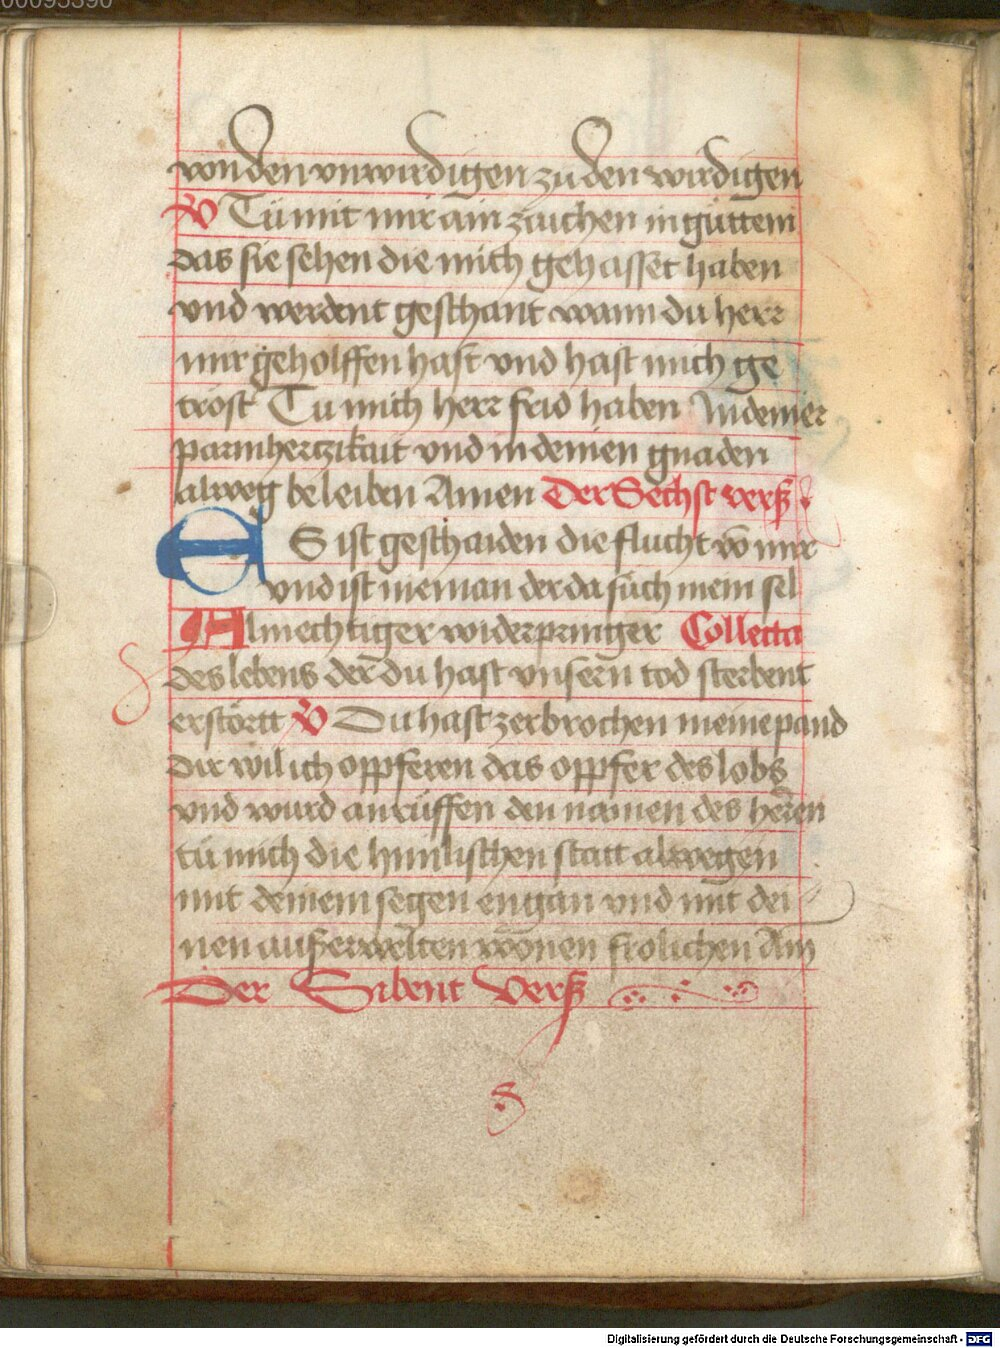 00095390
von den vnwirdigen zu den wirdigen
V Tů mit mir ain zaichen in gůttem
das sie sehen die mich gehasset haben
vnd werdent geschant wann du herr
mir geholffen hast vnd hast mich ge
tröst Tu mich herr frid haben In deiner
parmhertzikait vnd in deinen gnaden
alweg beleiben Amen Der Sechst verß
ES ist geschaiden die flucht võ mir
vnd ist nieman der da sůch mein sel
Almechtiger widerpringer Collecta
des lebens der du hast vnsern tod sterbent
erstörtt V Du hast zerbrochen meine pand
dir wil ich oppferen das oppfer des lobs
vnd wurd anrüffen den namen des heren
tů mich die himlischen statt alwegen
mit deinem segen engan vnd mit dei
nen außerwelten wonen frolichen Am
Der Sibent Verß
Digitalisierung gefördert durch die Deutsche Forschungsgemeinschaft - DFG